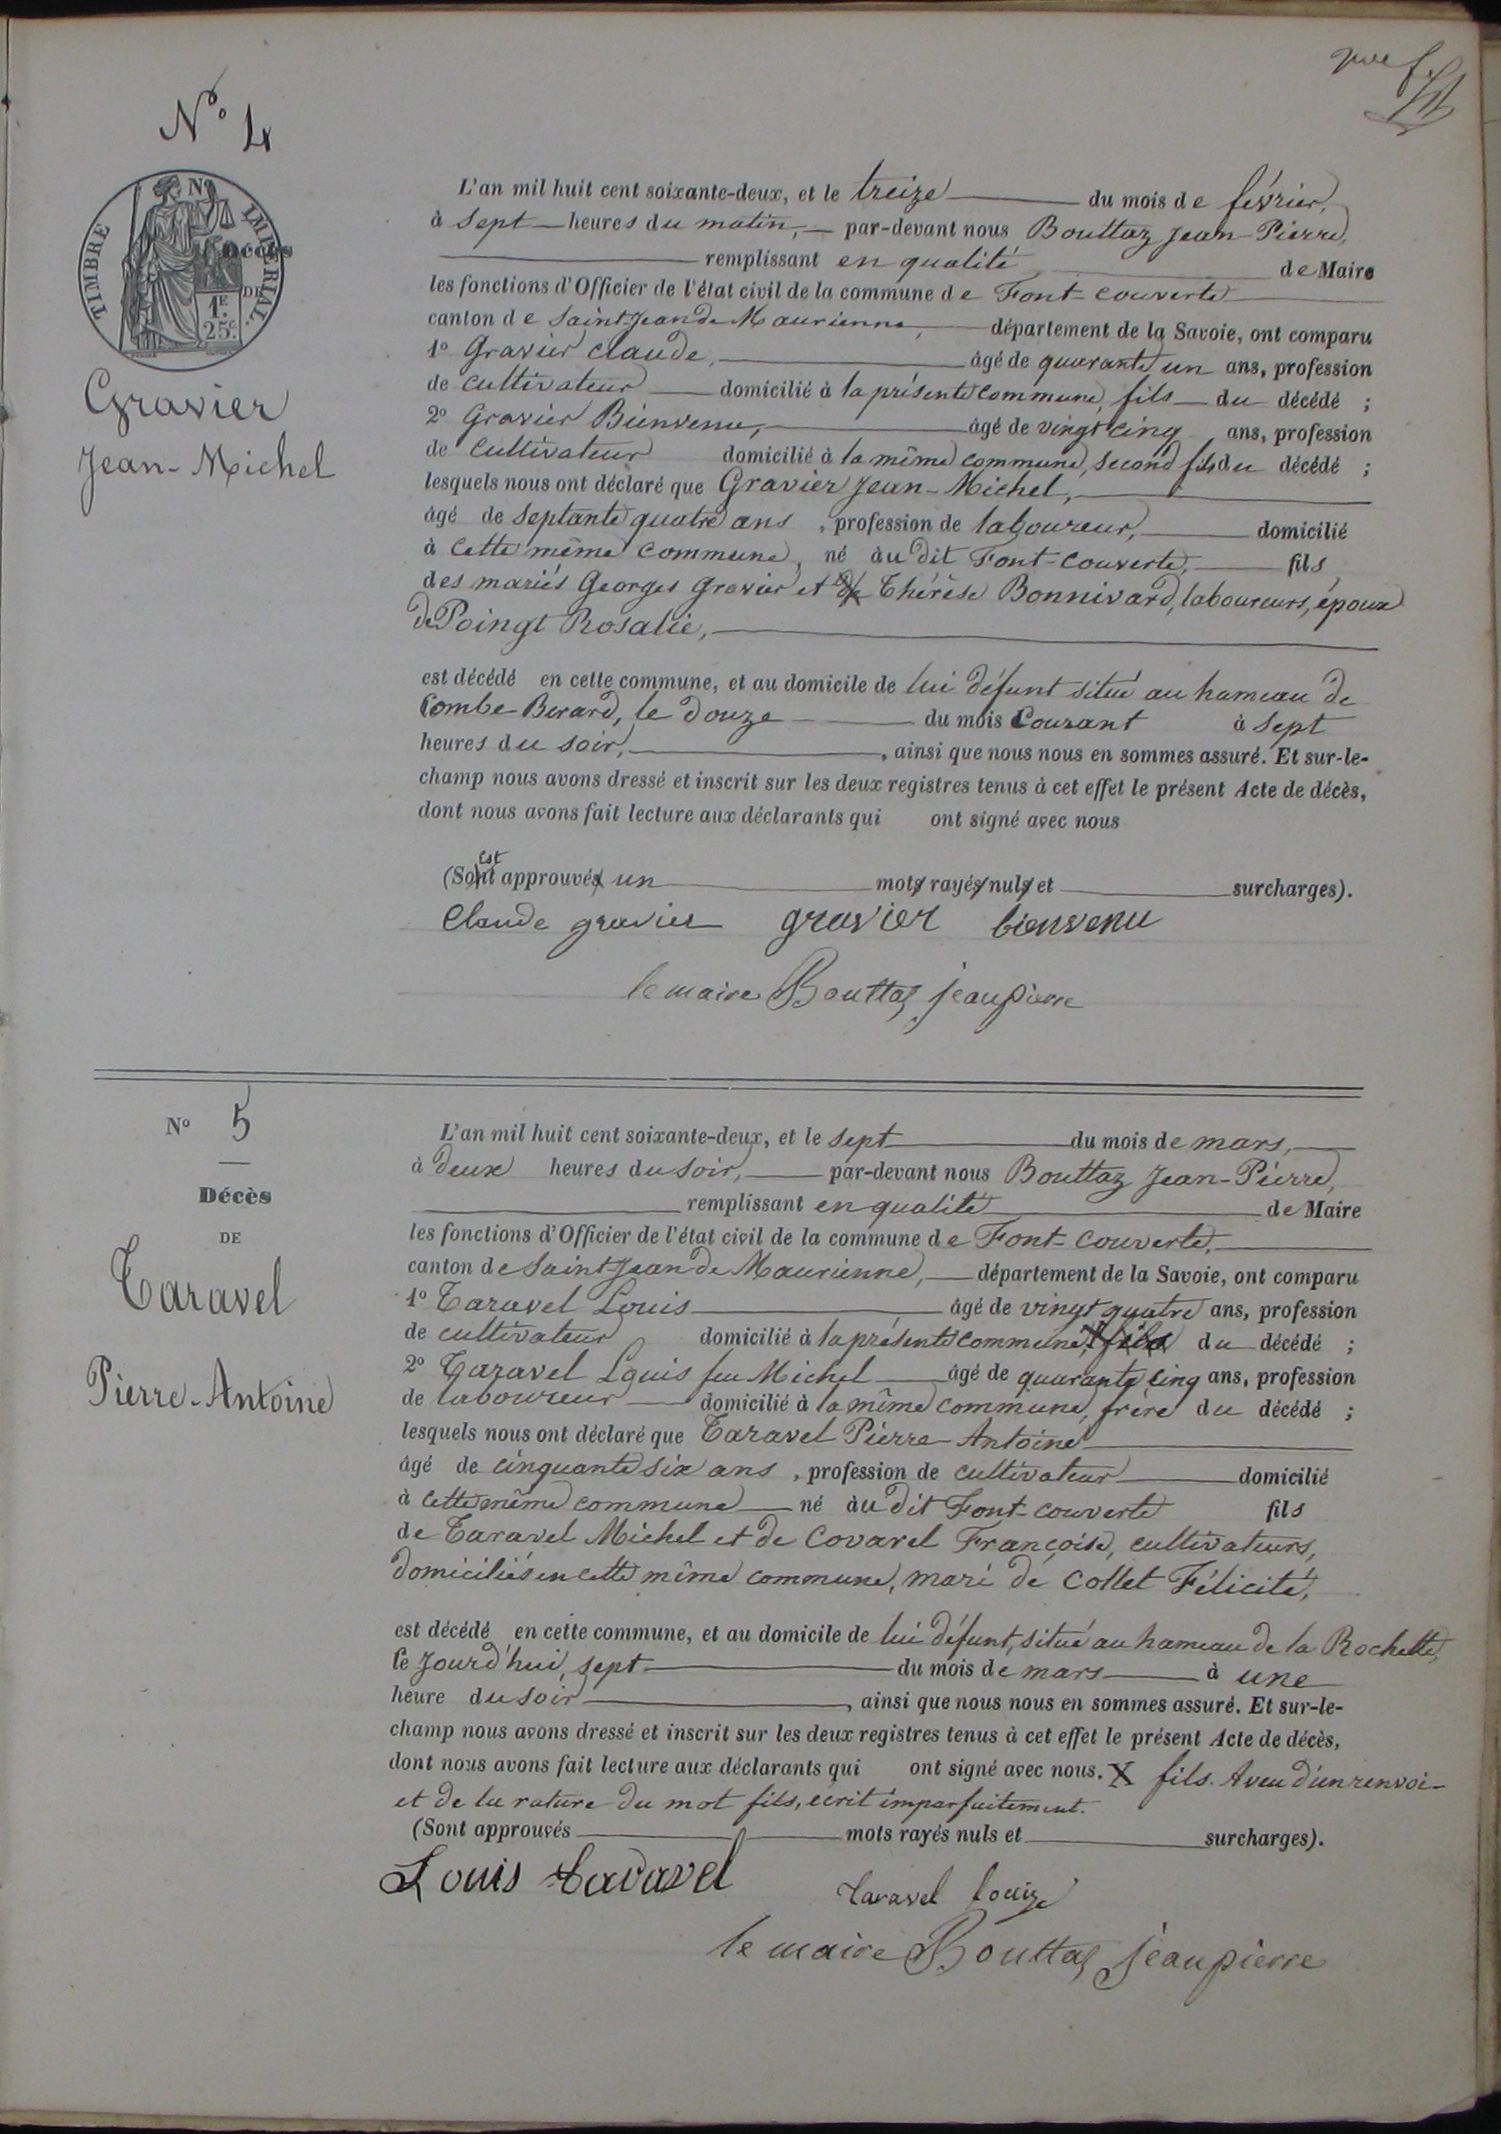 N° 4
TIMBRE IMPÉRIAL
N
Décès
DE
1F.
25c.
Gravier
Jean-Michel
L'an mil huit cent soixante-deux, et le treize du mois de février,
à sept heures du matin, par-devant nous Bouttaz Jean-Pierre,
remplissant en qualité de Maire
les fonctions d'Officier de l'état civil de la commune de Font-couverte
canton de Saint Jean de Maurienne, département de la Savoie, ont comparu
1° Gravier Claude, âgé de quarante un ans, profession
de cultivateur domicilié à la présente commune, fils du décédé ;
2° Gravier Bienvenu, âgé de vingt cinq ans, profession
de cultivateur domicilié à la même commune, second fils du décédé ;
lesquels nous ont déclaré que Gravier Jean-Michel,
âgé de septante quatre ans, profession de laboureur, domicilié
à cette même commune, né au dit Font-couverte, fils
des mariés Georges Gravier et de Thérèse Bonnivard, laboureurs, époux
de Poingt Rosalie,
est décédé en cette commune, et au domicile de lui défunt situé au hameau de
Combe-Berard, le douze du mois Courant à sept
heures du soir, ainsi que nous nous en sommes assuré. Et sur-le-
champ nous avons dressé et inscrit sur les deux registres tenus à cet effet le présent Acte de décès,
dont nous avons fait lecture aux déclarants qui ont signé avec nous
Est
(Sont approuvés un mots rayés nuls et surcharges).
Claude gravier gravier bienvenu
le maire Bouttaz jeanpierre
N° 5
Décès
DE
Taravel
Pierre-Antoine
L'an mil huit cent soixante-deux, et le sept du mois de mars,
à deux heures du soir, par-devant nous Bouttaz Jean-Pierre,
remplissant en qualité de Maire
les fonctions d'Officier de l'état civil de la commune de Font-couverte,
canton de Saint Jean de Maurienne, département de la Savoie, ont comparu
1° Taravel Louis âgé de vingt quatre ans, profession
de cultivateur domicilié à la présente commune, X fils du décédé ;
2° Taravel Louis feu Michel âgé de quarante cinq ans, profession
de laboureur domicilié à la même commune, frère du décédé ;
lesquels nous ont déclaré que Taravel Pierre-Antoine
âgé de cinquante six ans, profession de cultivateur domicilié
à cette même commune né au dit Font-couverte fils
de Taravel Michel et de Covarel Françoise, cultivateurs,
domiciliés en cette même commune, mari de Collet Félicité,
est décédé en cette commune, et au domicile de lui défunt, situé au hameau de la Rochette,
ce jourd'hui, sept du mois de mars à une
heure du soir, ainsi que nous nous en sommes assuré. Et sur-le-
champ nous avons dressé et inscrit sur les deux registres tenus à cet effet le présent Acte de décès,
dont nous avons fait lecture aux déclarants qui ont signé avec nous. X fils. Aveu d'un renvoi
et de la rature du mot fils, écrit imparfaitement.
(Sont approuvés mots rayés nuls et surcharges).
Louis taravel Taravel Louis
le maire Bouttaz jeanpierre